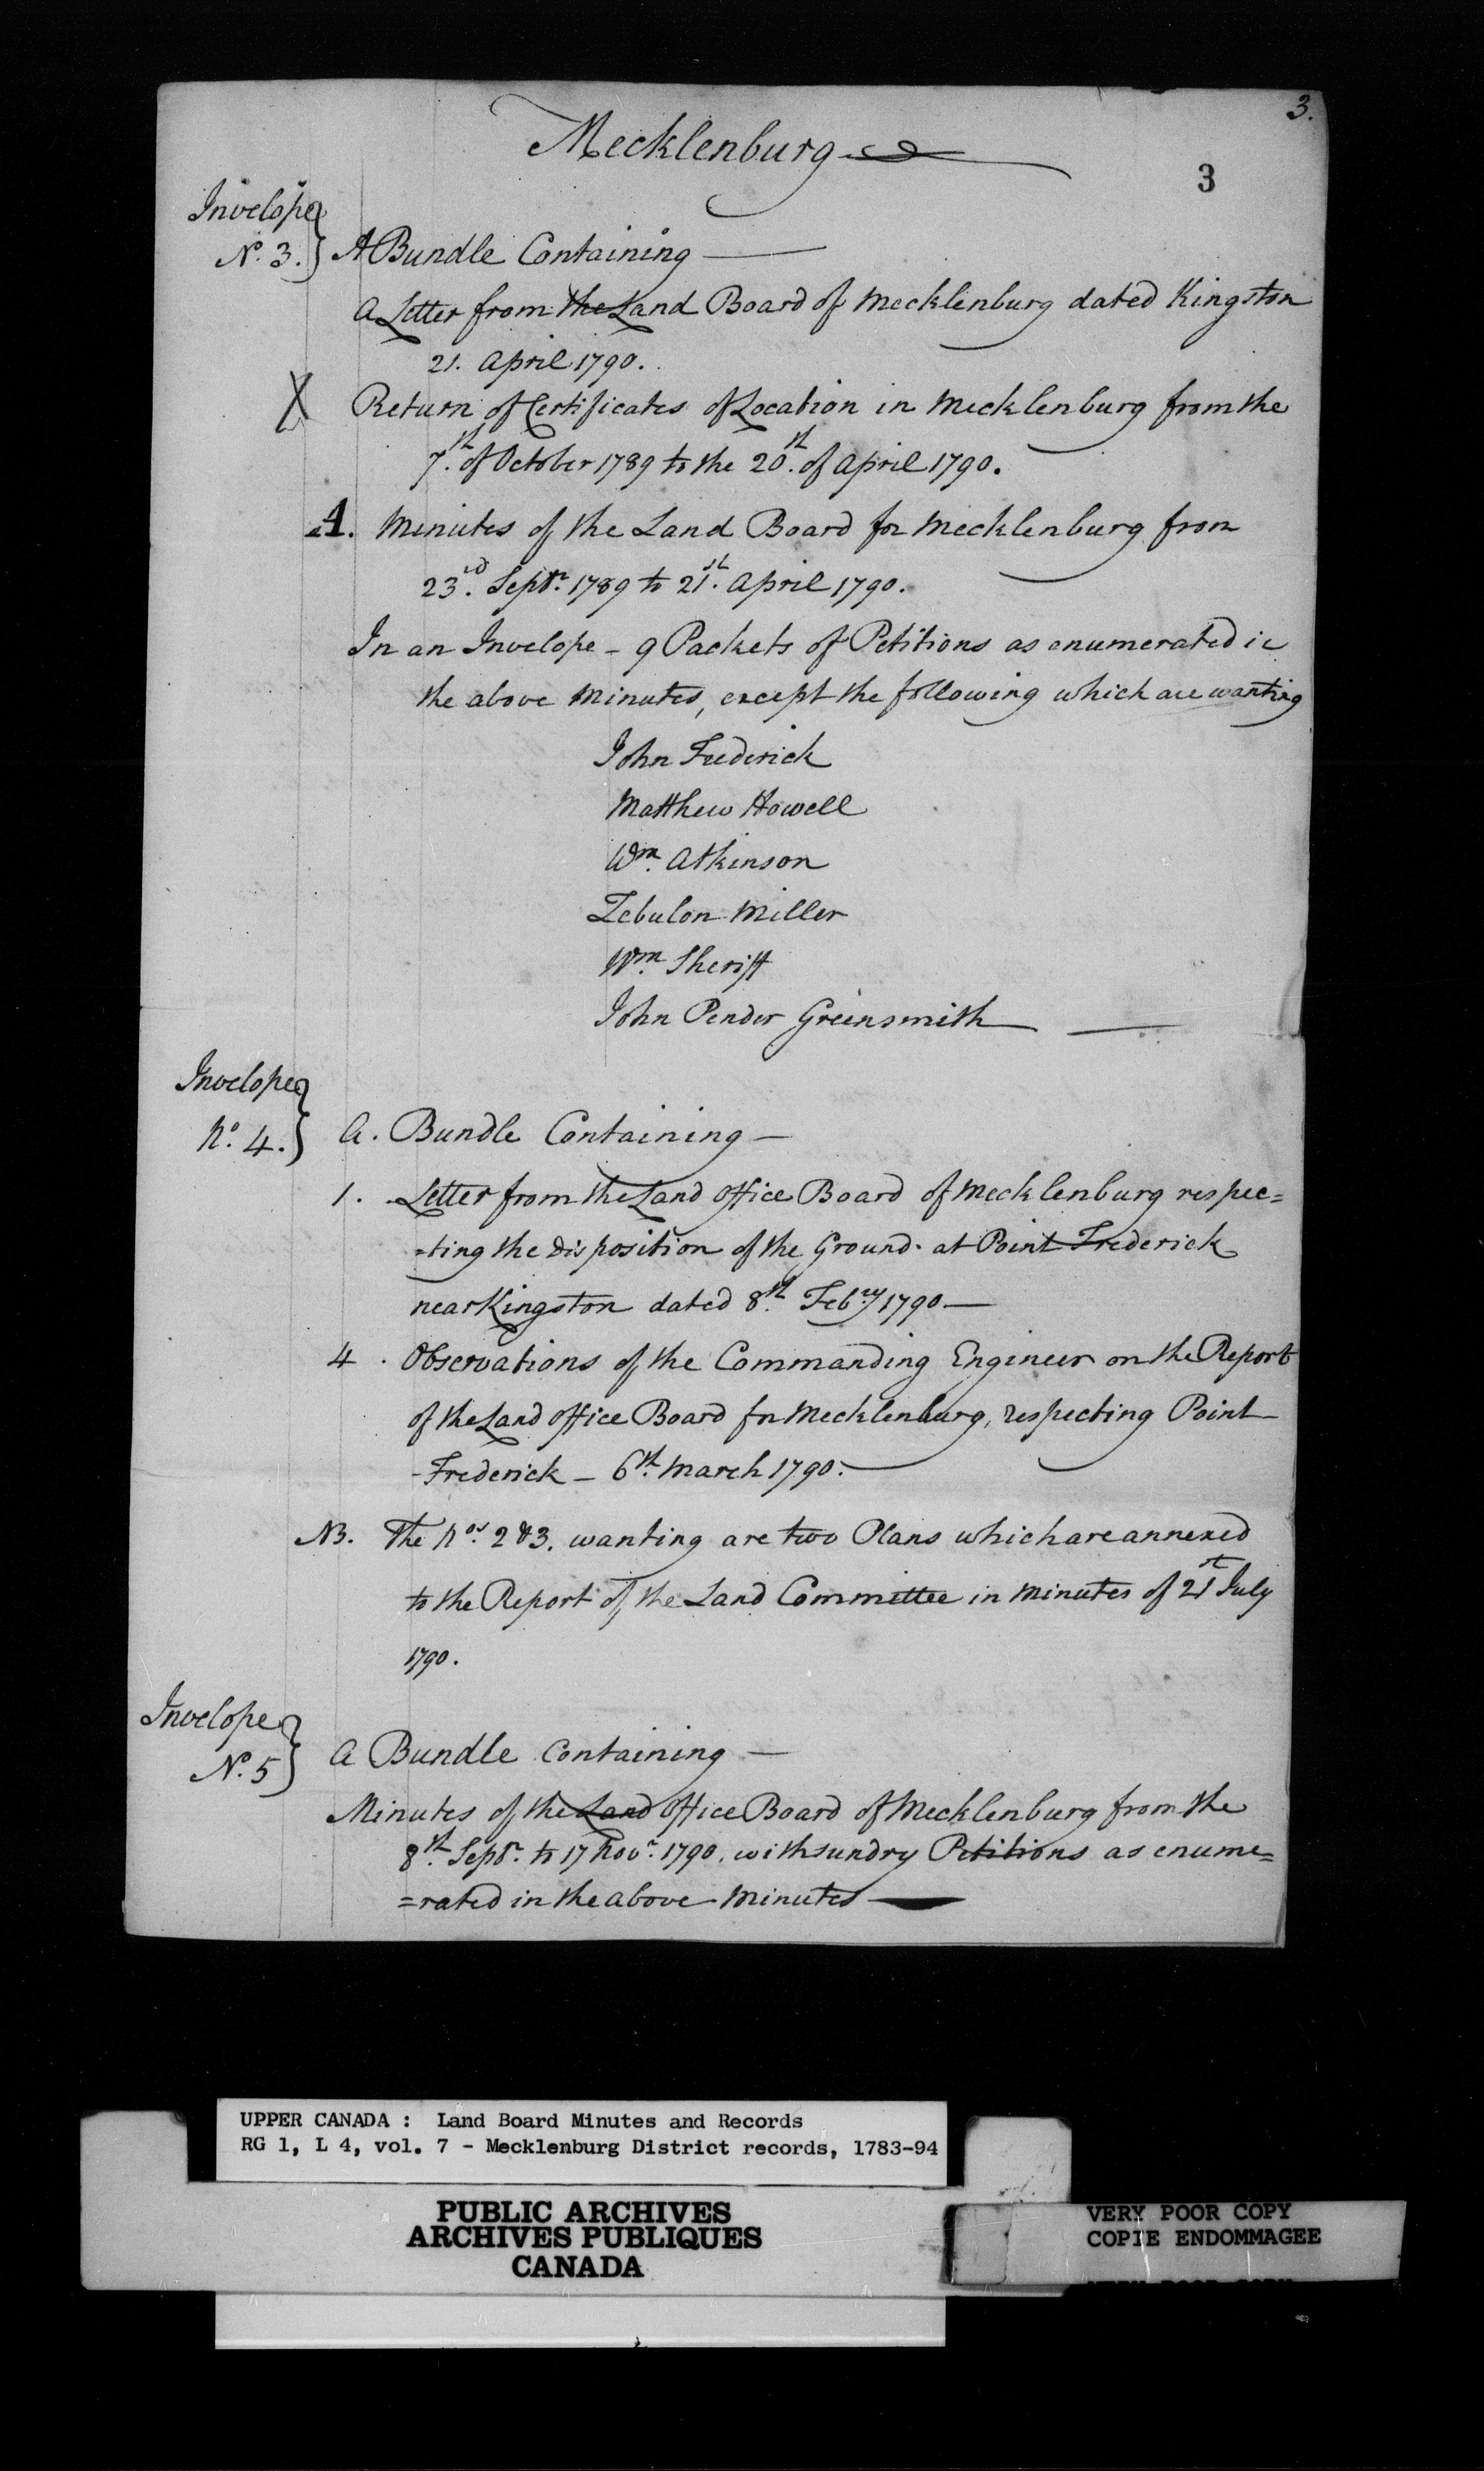 3.
Mecklenburg
3
Invelope
No. 3. } A Bundle Containing —
a Letter from the Land Board of Mecklenburg dated Kingston
21. April 1790.
X Return of Certificates of Location in Mecklenburg from the
7th. of October 1789 to the 20th. of April 1790.
A. Minutes of the Land Board for Mecklenburg from
23rd. Septr. 1789 to 21st. April 1790.
In an Invelope - 9 Packets of Petitions as enumerated in
the above Minutes, except the following which are wanting
John Frederick
Matthew Howell
Wm. Atkinson
Zebulon Miller
Wm. Sheriff
John Pender Greensmith —
Invelope
No. 4. } A. Bundle Containing —
1. Letter from the Land Office Board of Mecklenburg respec=
=ting the disposition of the Ground at Point Frederick
near Kingston dated 8th. Febry. 1790 —
4. Observations of the Commanding Engineer on the Report
of the Land Office Board for Mecklenburg, respecting Point
-Frederick — 6th. March 1790. —
NB. The Nos. 2 & 3. wanting are two Plans which are annexed
to the Report of the Land Committee in Minutes of 21st July
1790.
Invelope
No. 5 } A Bundle Containing —
Minutes of the Land Office Board of Mecklenburg from the
8th. Septr. to 17 Novr. 1790. with sundry Petitions as enume=
=rated in the above Minutes —
UPPER CANADA : Land Board Minutes and Records
RG 1, L 4, vol. 7 - Mecklenburg District records, 1783-94
PUBLIC ARCHIVES
ARCHIVES PUBLIQUES
CANADA
VERY POOR COPY
COPIE ENDOMMAGEE
VERY POOR COPY